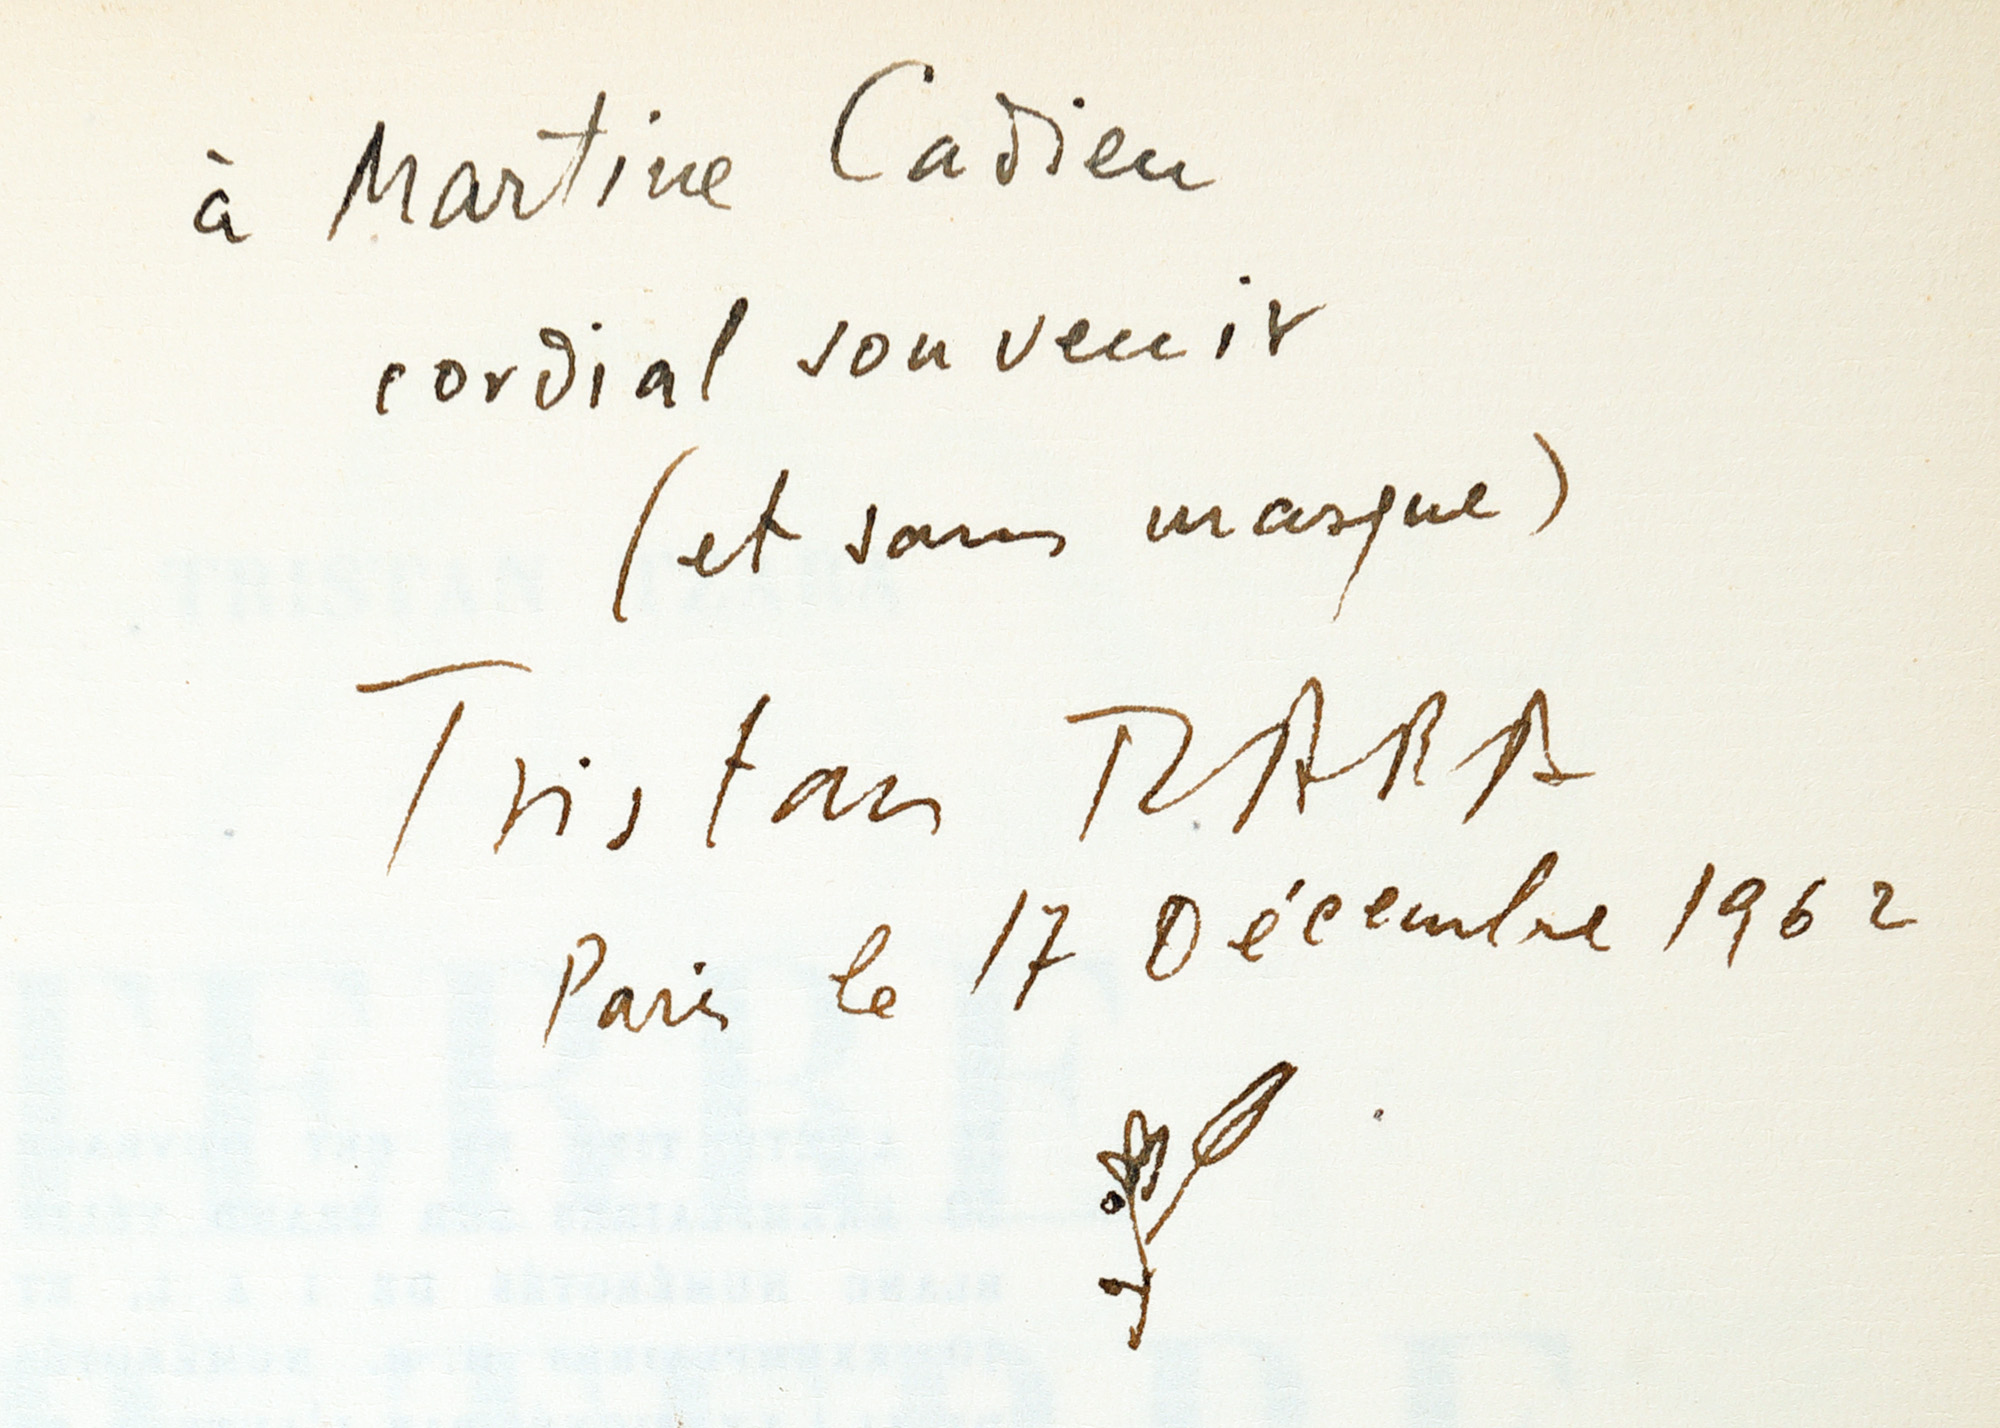 à Martine Cadieu
cordial souvenir
(et sans masque)
Tristan TZARA
Paris le 17 Décembre 1962